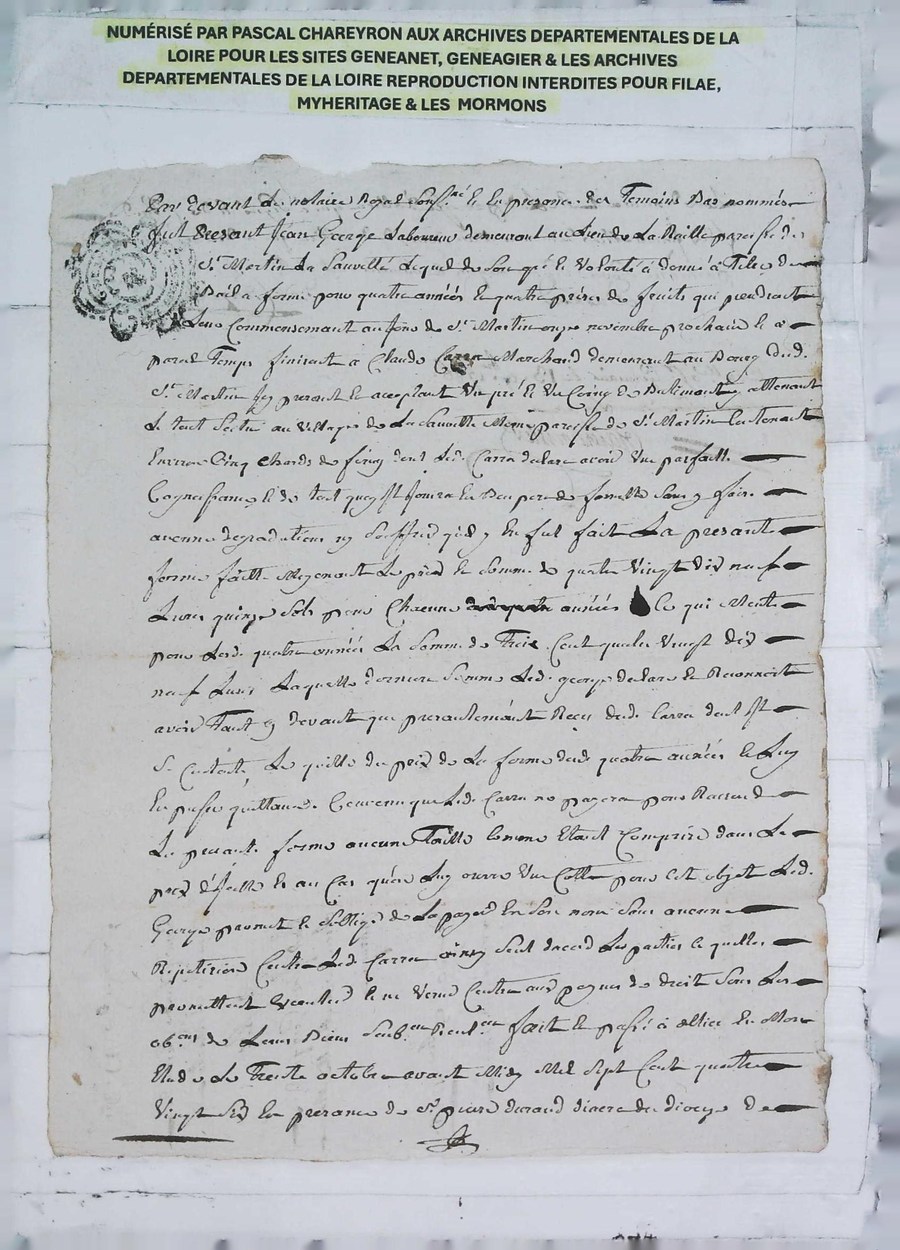 NUMÉRISÉ PAR PASCAL CHAREYRON AUX ARCHIVES DEPARTEMENTALES DE LA
LOIRE POUR LES SITES GENEANET, GENEAGIER & LES ARCHIVES
DEPARTEMENTALES DE LA LOIRE REPRODUCTION INTERDITES POUR FILAE,
MYHERITAGE & LES MORMONS
Par devant le notaire Royal Sousné et En presence des Temoins Bas nommés
fut Present Jean George Laboureur demeurant au Lieu de La paroisse de
St Martin La Sauveté Lequel de Son gré et Volonté à donné à Titre de
Bail a ferme pour quatre années et quatre prises de fruits qui prendront
Leur Commencement au Jour de St Martin onze novembre prochain et a
pareil Temps finiront à Claude Carra Marchand demeurant au Bourg dud.
St Martin Icy present et aceptant Un pré et Un Coing de attenant
Le tout Scitué au Village de La Sauveté Meme paroisse de St Martin Contenant
Environ Cinq Chards de foing dont Led. Carra declare avoir Une parfaitte
Cognoissance et de tout quoy Il Jouira En Bon pere de famille Sans y faire
aucune degradations ny Souffrir quil y En fut fait La presante
ferme faitte Moyenant Le prix et Somme de quatre Vingt dix neuf
Livres quinze Sols pour Chacune années Ce qui Monte
pour Lesd. quatre années La Somme de Trois Cent quatre Vingt dix
neuf Livres Laquelle derniere Somme Led. George declare et Reconnoit
avoir Tant cy devant que presentement Reçu dud. Carra dont Il
Se Contente, Le quitte du prix de La ferme desd quatre années et Luy
En passe quittance. Convenu que Led. Carra ne payera pour Raison de
La presente ferme aucune Taille Comme Etant Comprise dans Le
prix d'Icelle et au Cas quon Luy ouvre Une Cotte pour Cet objet Led.
George promet et soblige de La payer En Son nom Sans aucune
Repetition Contre Led. Carra ainsy Sont dacord Les parties Lesquelles
promettent Executer et ne Venir Contre aux peynes de droit Sous Les
obons de Leurs Biens fait et passé à
Etude Le Trente octobre avant Midy Mil Sept Cent quatre
Vingt Six En presence de Sr pierre durand diacre du dioceze de